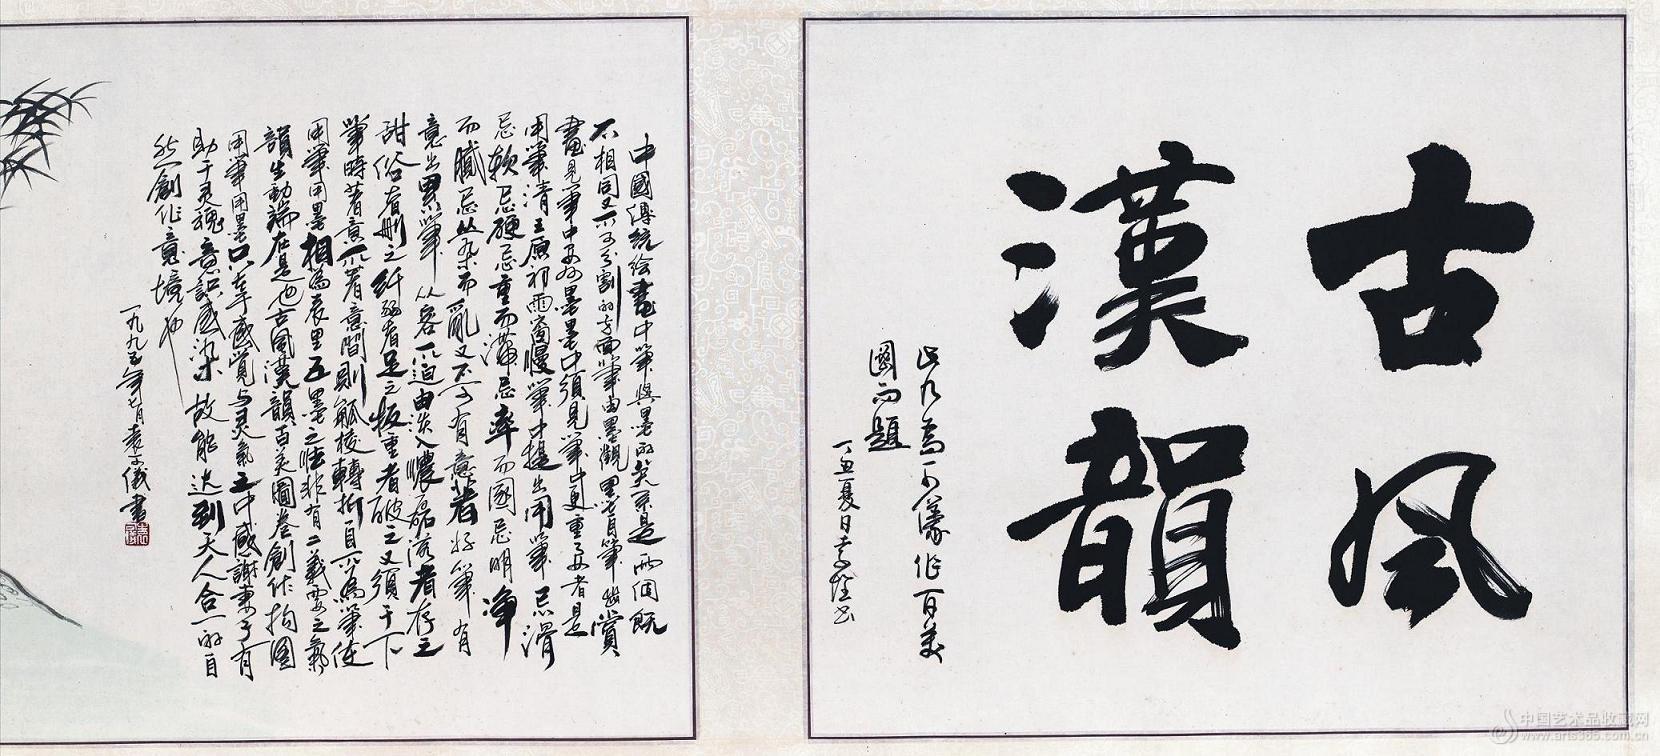 古風
漢韻
此九為一少儀作百美
圖而題
丁丑夏日
中國傳統绘畫中筆與墨的关系是两個既
不相同又不可分割的方面筆由墨觀墨皆自筆出賞
畫見筆中要外墨墨中須見筆此更重要者是
用筆清王原初雨窗慢筆中提出用筆忌滑
忌軟忌硬忌重而滞忌率而國忌明净
而膩忌丛杂而亂又不可有意著好筆有
意出累筆从容不迫由淡入濃磊落者存之
甜俗者删之纤弱者足之板重者破之又須于下
筆時著意不著意間則觚棱轉折自不為筆使
用筆用墨相為表里五墨之法非有二義要之氣
韻生動端在是也古風漢韻百美圖卷創作构圖
用筆用墨只幸感覺与灵氣之中感謝妻子有
助于灵魂意识感染故能达到天人合一的自
然創作意境也
一九九五年七月袁少儀書
中国艺术品收藏网
www.arts365.com.cn